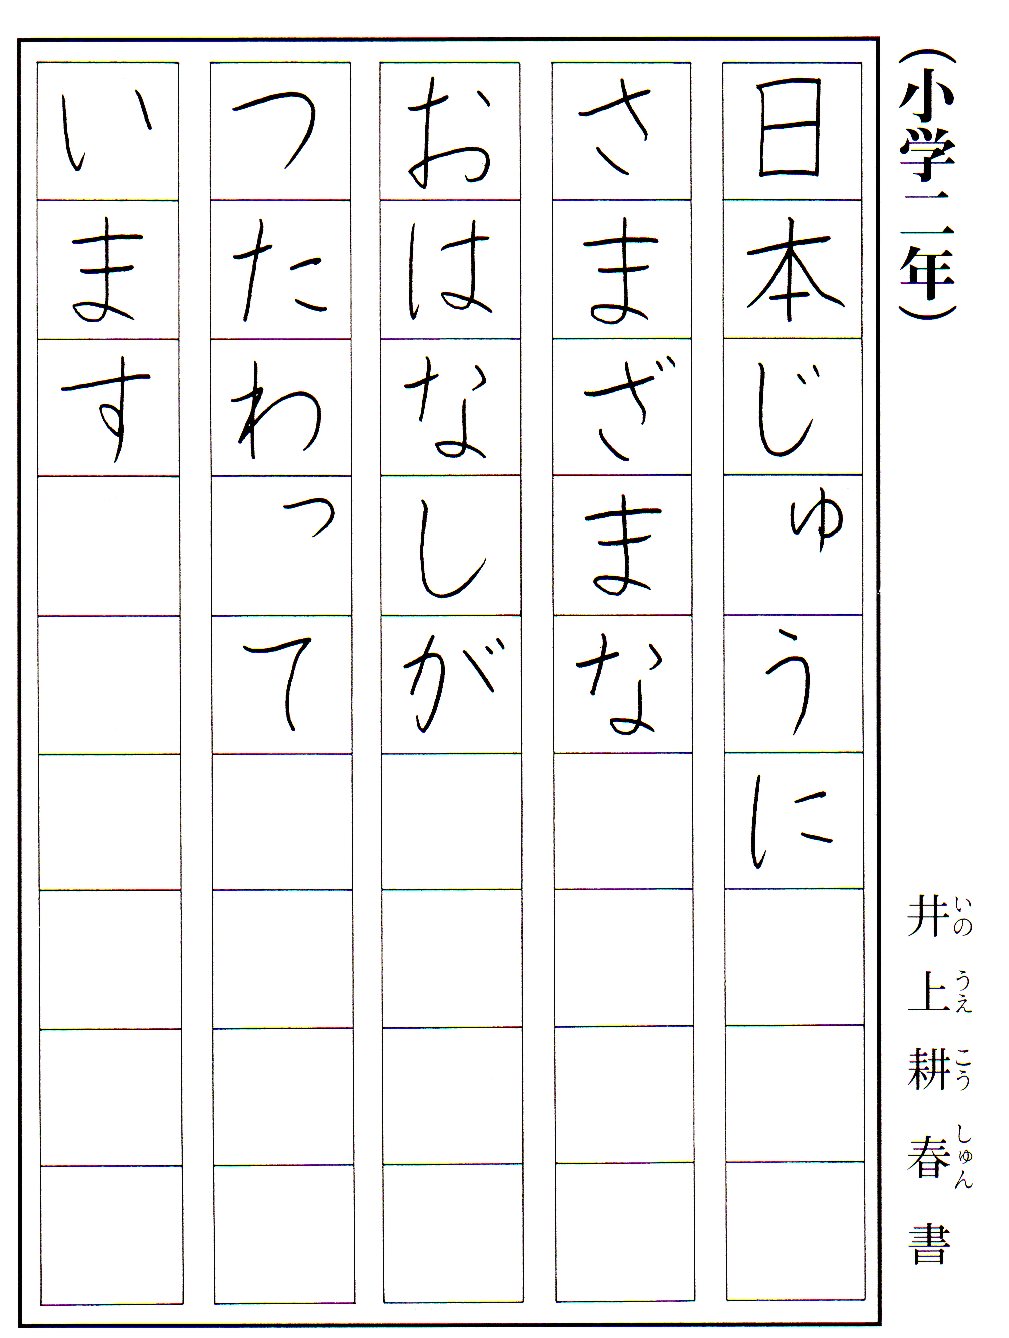 (小学二年)
井上耕春書
いのうえこうしゅん
日本じゅうに
さまざまな
おはなしが
つたわって
います